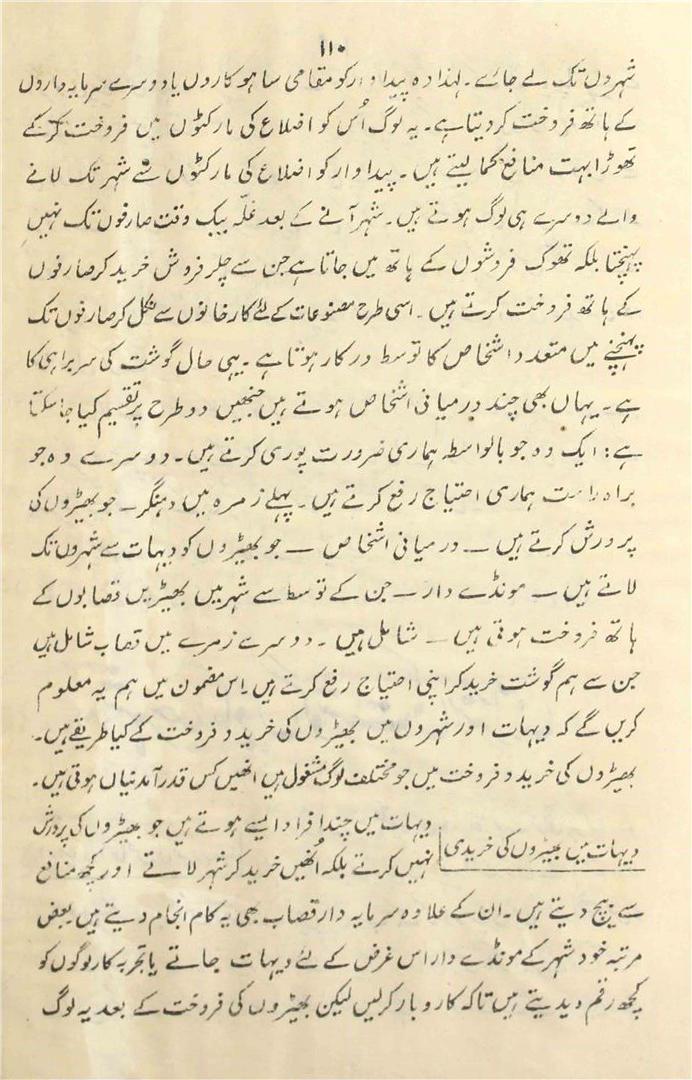 ۱۱۰
شہروں تک لے جائے۔ لہذا وہ پیداوار کو مقامی ساہوکاروں یا دوسرے سرمایہ داروں
کے ہاتھ فروخت کر دیتا ہے۔ یہ لوگ اُس کو اضلاع کی مارکٹوں میں فروخت کر کے
تھوڑا بہت منافع کما لیتے ہیں۔ پیداوار کو اضلاع کی مارکٹوں سے شہر تک لانے
والے دوسرے ہی لوگ ہوتے ہیں۔ شہر آنے کے بعد غلّہ بیک وقت صارفوں تک نہیں
پہنچتا بلکہ تھوک فروشوں کے ہاتھ میں جاتا ہے جن سے چلر فروش خرید کر صارفوں
کے ہاتھ فروخت کرتے ہیں۔ اسی طرح مصنوعات کے لئے کارخانوں سے نکل کر صارفوں تک
پہنچنے میں متعدد اشخاص کا توسط درکار ہوتا ہے۔ یہی حال گوشت کی سربراہی کا
ہے۔ یہاں بھی چند درمیانی اشخاص ہوتے ہیں جنھیں دو طرح پر تقسیم کیا جا سکتا
ہے: ایک وہ جو بالواسطہ ہماری ضرورت پوری کرتے ہیں۔ دوسرے وہ جو
براہ راست ہماری احتیاج رفع کرتے ہیں۔ پہلے زمرہ میں دہنگر ۔ جو بھیڑوں کی
پرورش کرتے ہیں ۔ درمیانی اشخاص ۔ جو بھیڑوں کو دیہات سے شہروں تک
لاتے ہیں ۔ مونڈے دار ۔ جن کے توسط سے شہر میں بھیڑیں قصابوں کے
ہاتھ فروخت ہوتی ہیں ۔ شامل ہیں ۔ دوسرے زمرے میں قصاب شامل ہیں
جن سے ہم گوشت خرید کر اپنی احتیاج رفع کرتے ہیں۔ اس مضمون میں ہم یہ معلوم
کریں گے کہ دیہات اور شہروں میں بھیڑوں کی خرید و فروخت کے کیا طریقے ہیں۔
بھیڑوں کی خرید و فروخت میں جو مختلف لوگ مشغول ہیں انھیں کس قدر آمدنیاں ہوتی ہیں۔
دیہات میں بھیڑوں کی خریدی
دیہات میں چند افراد ایسے ہوتے ہیں جو بھیڑوں کی پرورش
نہیں کرتے بلکہ اُنھیں خرید کر شہر لاتے اور کچھ منافع
سے بیچ دیتے ہیں۔ ان کے علاوہ سرمایہ دار قصاب بھی یہ کام انجام دیتے ہیں۔ بعض
مرتبہ خود شہر کے مونڈے دار اس غرض کے لئے دیہات جاتے یا تجربہ کار لوگوں کو
کچھ رقم دیدیتے ہیں تاکہ کاروبار کرلیں لیکن بھیڑوں کی فروخت کے بعد یہ لوگ